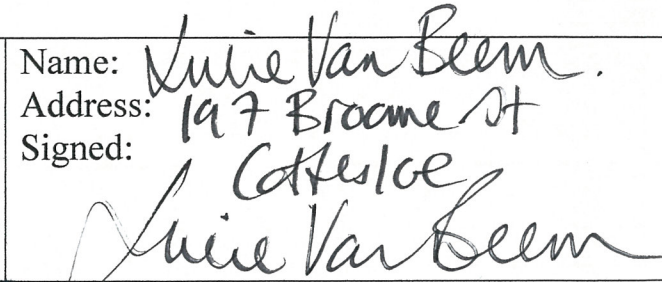 Name: Julie Van Beem.
Address: 197 Broome St
Cottesloe
Signed: Julie Van Beem